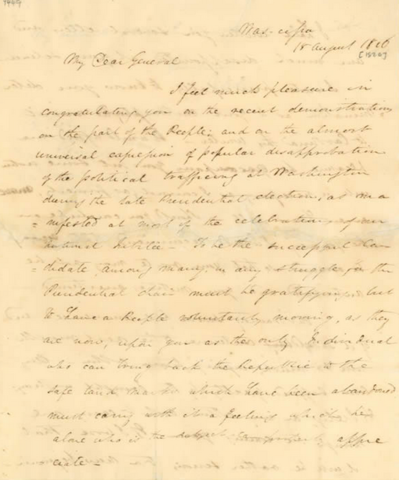 18 August 1826
My Dear General
I feel much pleasure in
congratulating you on the recent demonstrations
on the part of the People: and on the almost
universal expression of popular disapprobation
of the political trafficing at Washington
during the late Presidential election, as ma
-nifested at most of the celebrations of our
To be the successful can
-didate among many, in any struggle for the
Presidential chair must be gratifying, but
to have a People voluntarily moving, as they
are now, upon you as the only Individual
who can bring back the
safe land marks which have been abandoned
must carry with it a feeling which he
alone who is the can appre
ciate -